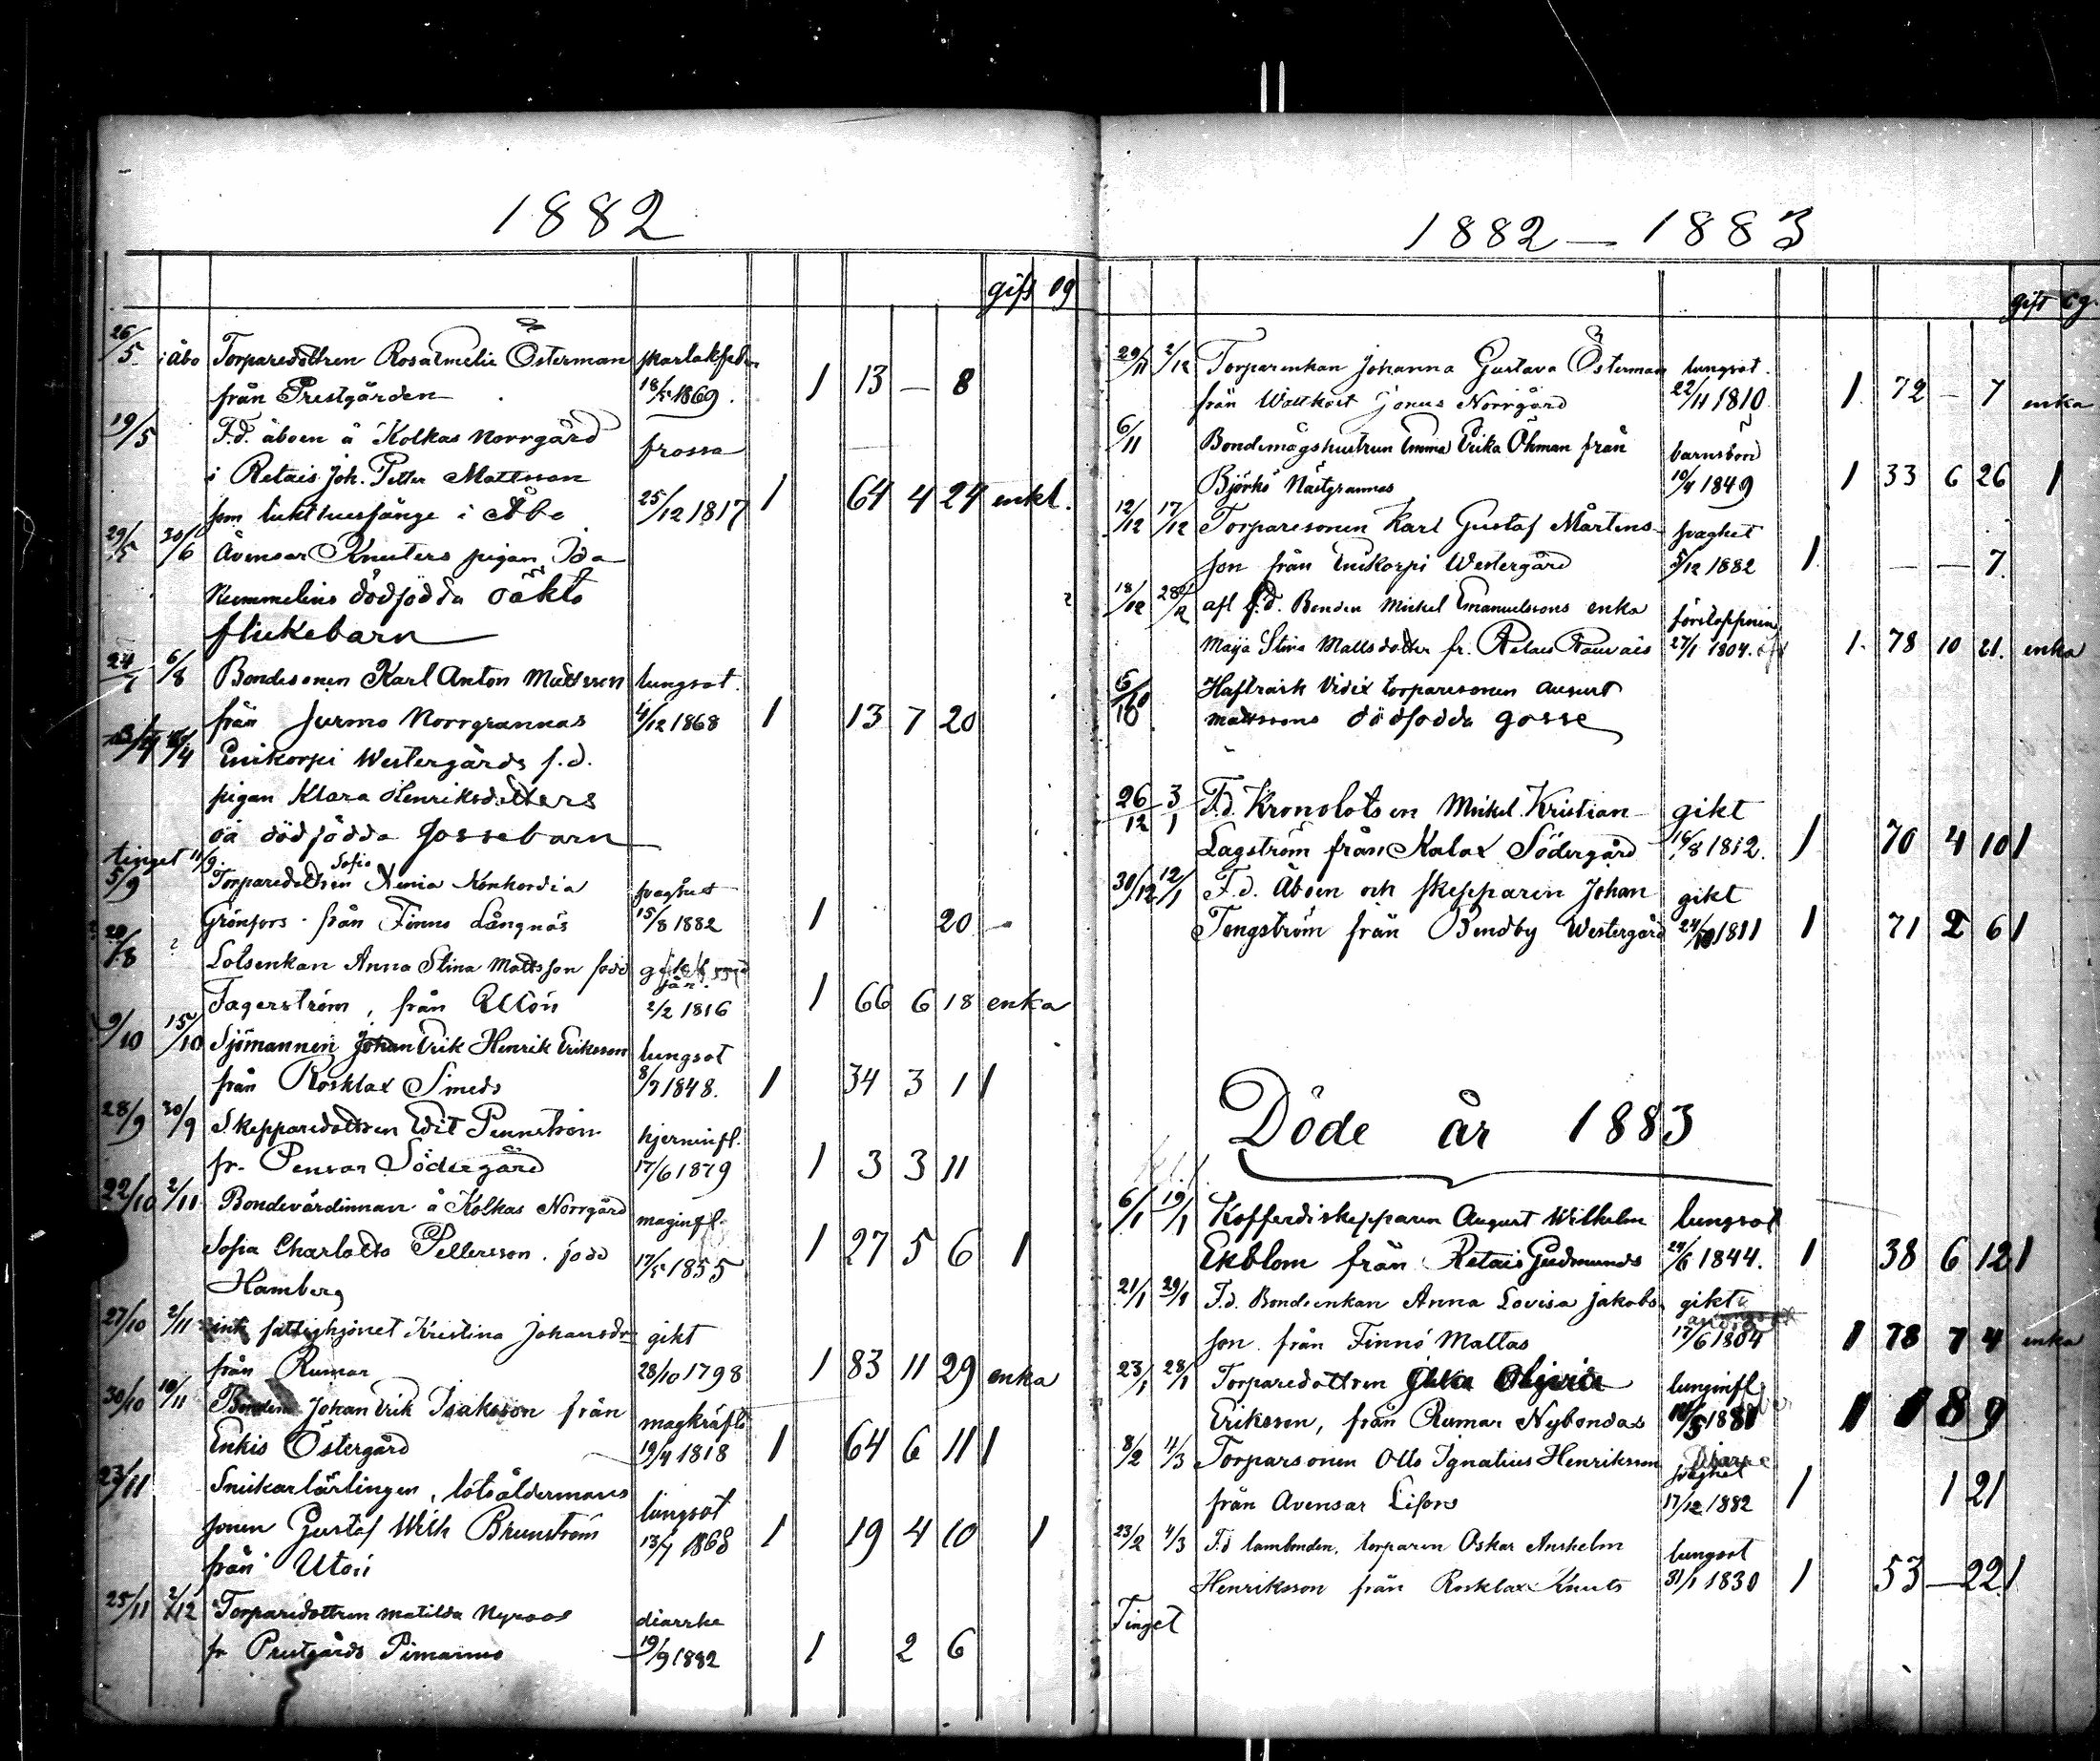 1882
gift og
26/5 i Åbo Torparedottren Rosa Amelie Österman skarlaksfeber
från Prestgården 18/5 1869. 1 13 — 8
19/5 F.d. åboen å Kolkas Norrgård frossa
i Retais Joh. Petter Mattsson
som tukthusfånge i Åbo 25/12 1817 1 64 4 24 enkl.
29/5 30/6 Åvensar Knuters pigan Ida
Kummelins dödfödda oäkta
flickebarn
24/7 6/8 Bondesonen Karl Anton Mattsson lungsot.
från Jurmo Norrgrannas 4/12 1868 1 13 7 20
Enikorpi Westergårds f.d.
pigan Klara Henriksdotters
oä dödfödda gossebarn
tinget 11/9
5/9 Torparedottren Sofia Xenia Konkordia svaghet
Grönfors från Finno Långnäs 15/8 1882 1 20 —
20/8 ? Lotsenkan Anna Stina Mattsson född
Fagerström, från Utön 2/2 1816 1 66 6 18 enka
9/10 15/10 Sjömannen Johan Erik Henrik Eriksson lungsot
från Rosklax Smeds 8/7 1848. 1 34 3 1 1
28/9 30/9 Skepparedottren Edit Pennström hjerninfl.
fr. Pensar Södergård 17/6 1879 1 3 3 11
22/10 2/11 Bondevärdinnan å Kolkas Norrgård maginfl.
Sofia Charlotta Pettersson född 17/5 1855 1 27 5 6 1
Hamberg
27/10 2/11 fattighjonet Kristina Johansdr gikt
från Rumar 28/10 1798 1 83 11 29 enka
30/10 10/11 Bonden Johan Erik Isaksson från magkräfta
Enkis Östergård 19/4 1818 1 64 6 11 1
23/11 Snickarlärlingen, lotsåldermans lungsot
sonen Gustaf Wilh Brunström 13/7 1863 1 19 4 10 1
från Utön
25/11 2/12 Torparedottren Matilda Nyroos diarrhe
fr Prestgårds Pimarmo 19/9 1882 1 2 6
1882 — 1883
gift og
29/11 2/12 Torparenkan Johanna Gustava Österman lungsot.
från Wattkast Jonus Norrgård 22/11 1810 1. 72 — 7 enka
6/11 Bondemågshustrun Emma Erika Öhman från barnsbörd
Björkö Nästgrannas 10/4 1849 1 33 6 26 1
12/12 17/12 Torparesonen Karl Gustaf Mårtens- svaghet
son från Enikorpi Westergård 5/12 1882 1 — — 7.
18/12 28/12 afl f.d. Bonden Mickel Emanuelssons enka förstoppning
Maja Stina Mattsdotter fr. Retais Rauvais 27/1 1804. 1. 78 10 21. enka
Haftrask Vidix torparesonen August
Mattssons dödfödda gosse
26/12 3/1 F.d. Kronolotsen Mickel Kristian gikt
Lagström från Kalax Södergård 16/8 1812. 1 70 4 10 1
30/12 12/1 F.d. Åboen och skepparen Johan gikt
Tengström från Bendby Westergård 24/10 1811 1 71 2 6 1
Döde år 1883
6/1 19/1 Kofferdiskepparen August Wilhelm lungsot
Ekblom från Retais Gudmunds 24/6 1844. 1 38 6 12 1
21/1 29/1 F.d. Bondeenkan Anna Lovisa Jakobs- gikt
son från Finnö Mattas 17/6 1804 1 78 7 4 enka
23/1 28/1 Torparedottren Olivia lunginfl.
Eriksson, från Rumar Nybondas 14/5 1881 1 1 8 9
8/2 4/3 Torparsonen Otto Ignatius Henriksson svaghet
från Avensar Lifors 17/12 1882 1 1 21
23/2 4/3 F.d. lanbonden, torparen Oskar Anshelm lungsot
Henriksson från Rosklax Knuts 31/1 1830 1 53 — 22 1
Tinget